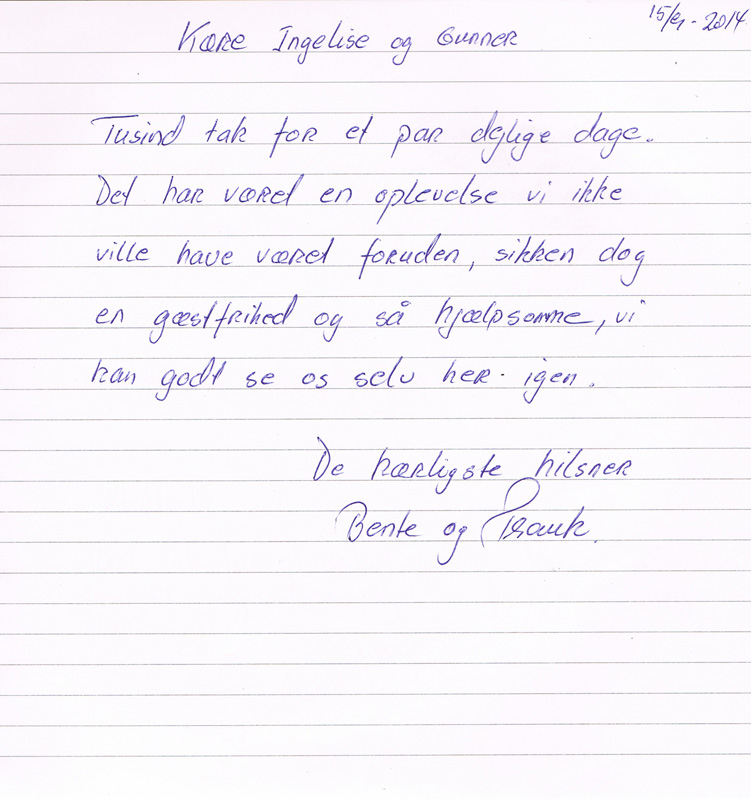 15/4-2014
Kære Ingelise og Gunner
Tusind tak for et par dejlige dage.
Det har været en oplevelse vi ikke
ville have været foruden, sikken dog
en gæstfrihed og så hjælpsomme, vi
kan godt se os selv her igen.
De kærligste hilsner
Bente og Frank.